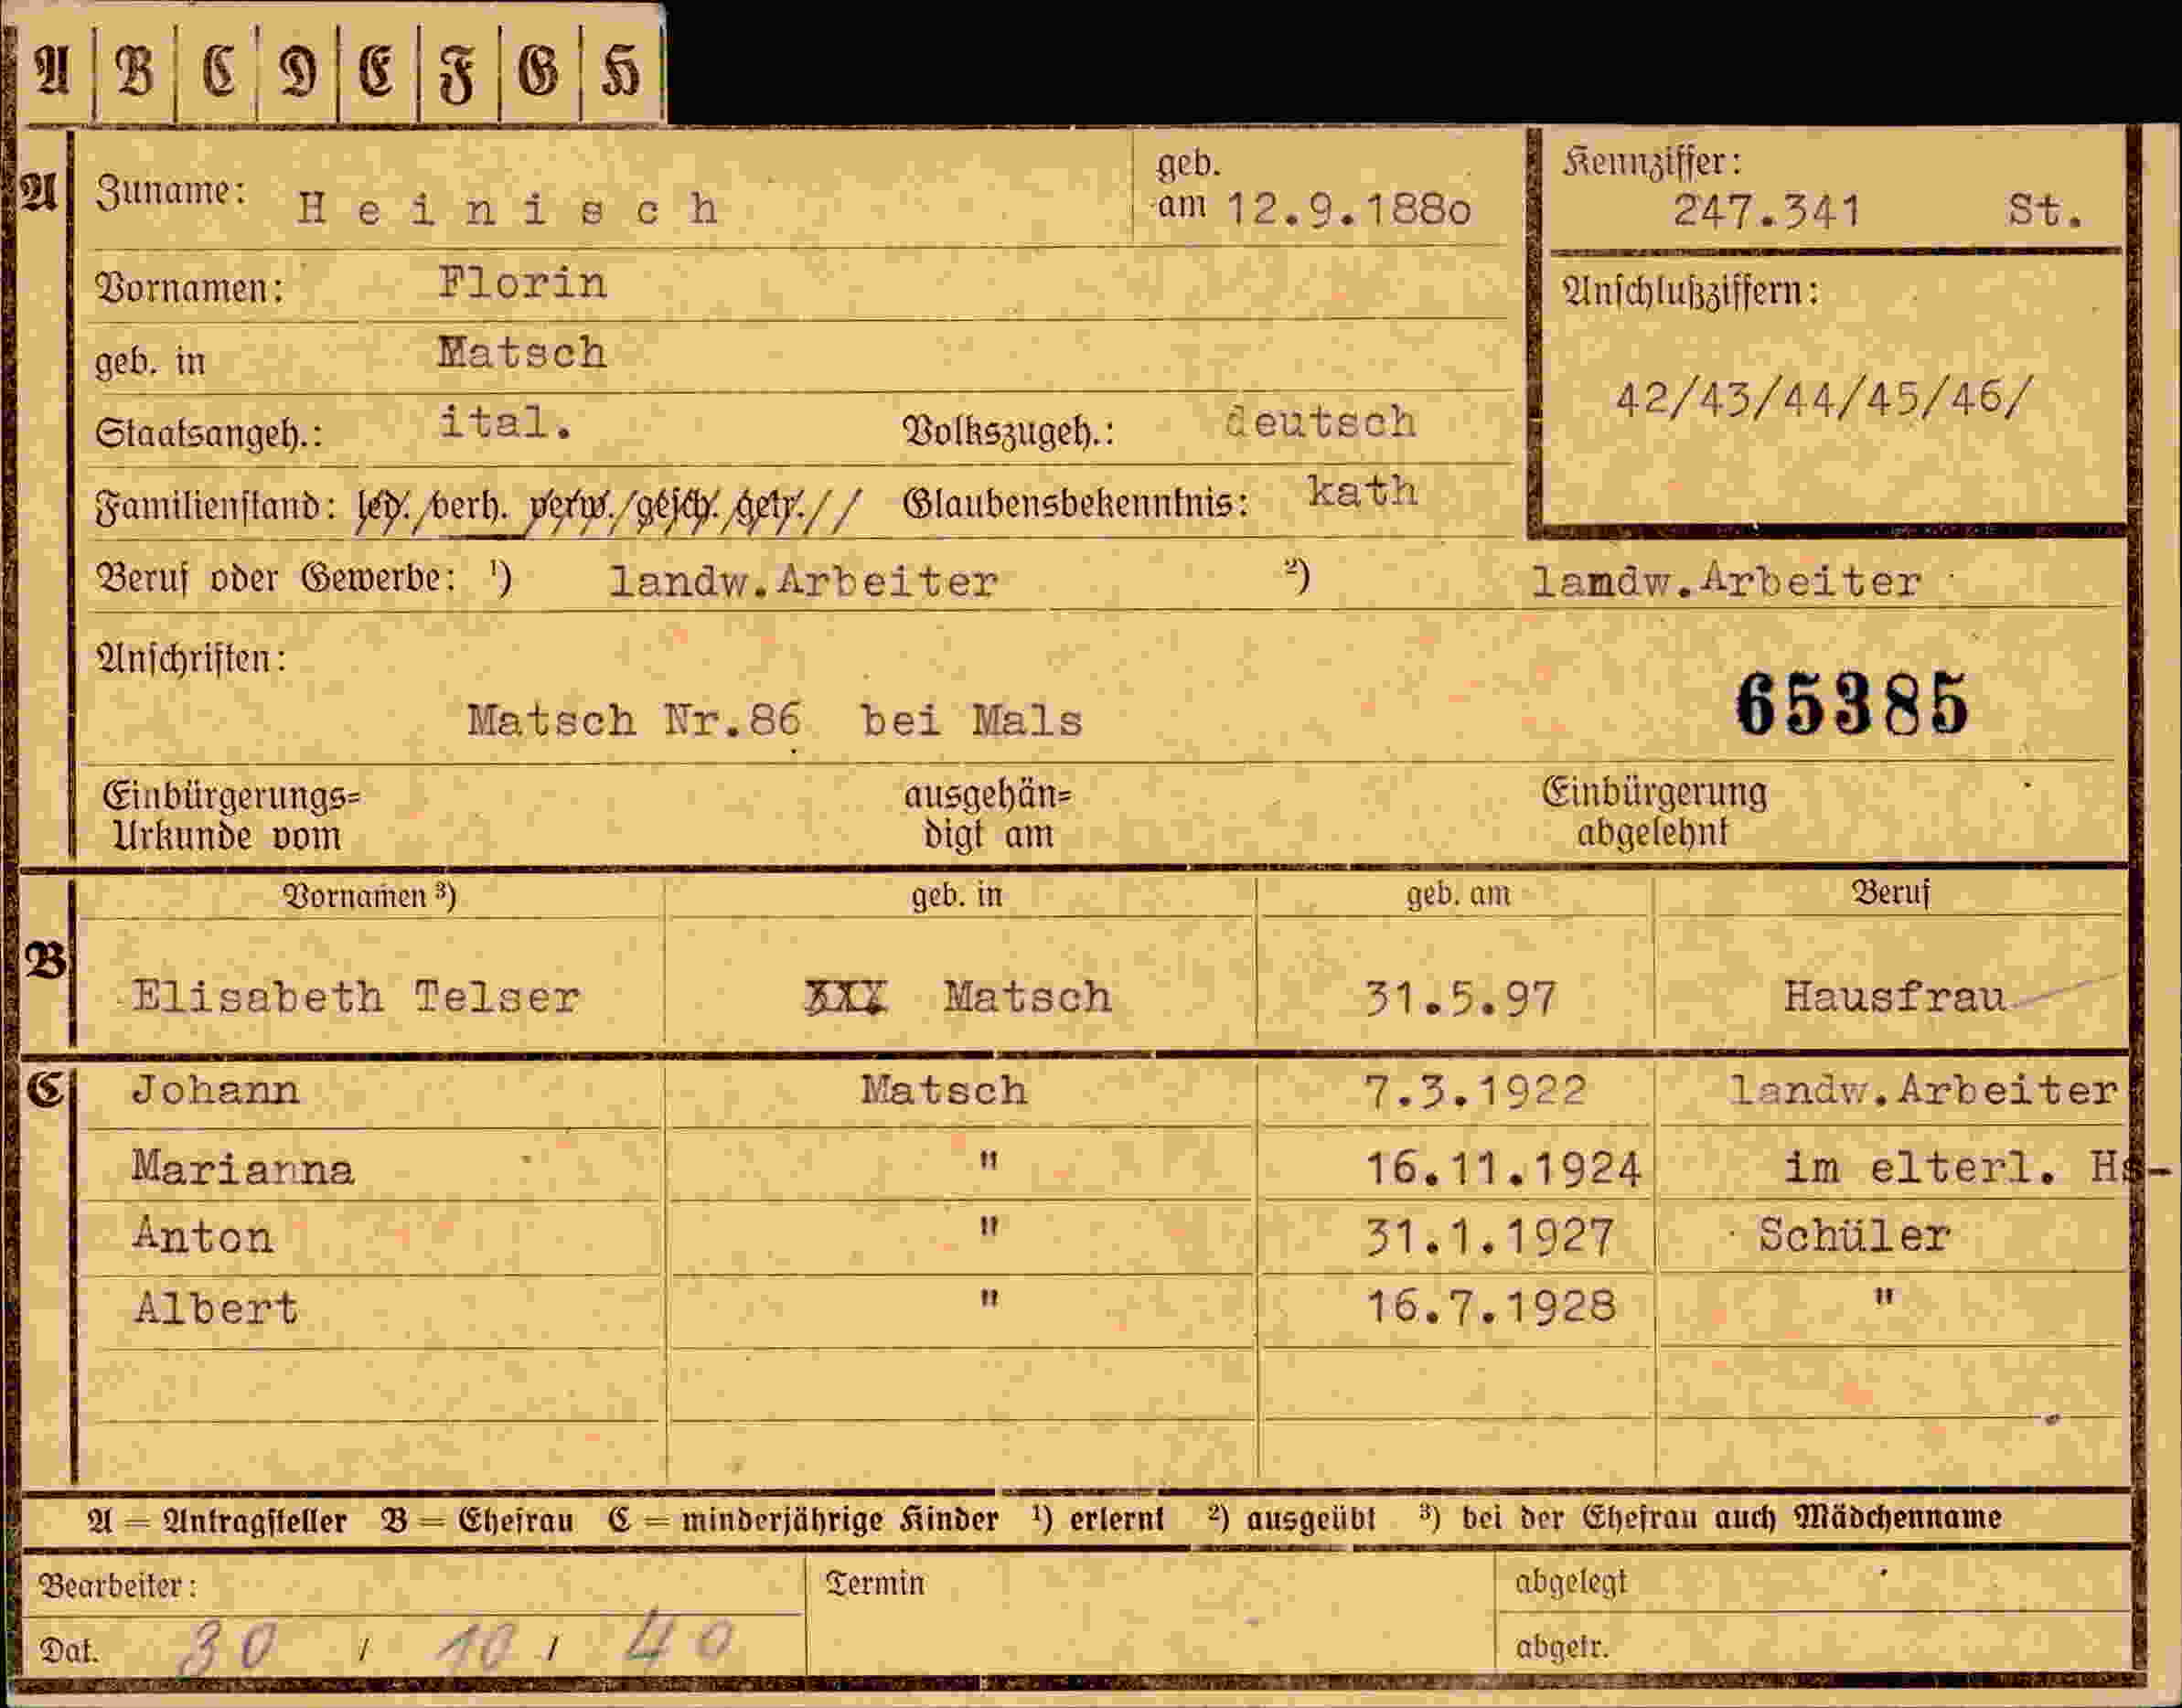 A B C D E F G H
A Zuname: Heinisch geb. am 12.9.1880 Kennziffer: 247.341 St.
Vornamen: Florin Anschlußziffern:
geb. in Matsch 42/43/44/45/46/
Staatsangeh.: ital. Volkszugeh.: deutsch
Familienstand: led. verh. verw. gesch. getr. // Glaubensbekenntnis: kath
Beruf oder Gewerbe: ¹) landw.Arbeiter ²) lamdw.Arbeiter
Anschriften:
Matsch Nr.86 bei Mals 65385
Einbürgerungs= ausgehän= Einbürgerung
Urkunde vom digt am abgelehnt
Vornamen ³) geb. in geb. am Beruf
B Elisabeth Telser XXX Matsch 31.5.97 Hausfrau
C Johann Matsch 7.3.1922 landw.Arbeiter
Marianna " 16.11.1924 im elterl. Hs-
Anton " 31.1.1927 Schüler
Albert " 16.7.1928 "
A = Antragsteller B = Ehefrau C = minderjährige Kinder ¹) erlernt ²) ausgeübt ³) bei der Ehefrau auch Mädchenname
Bearbeiter: Termin abgelegt
Dat. 30 / 10 / 40 abgetr.